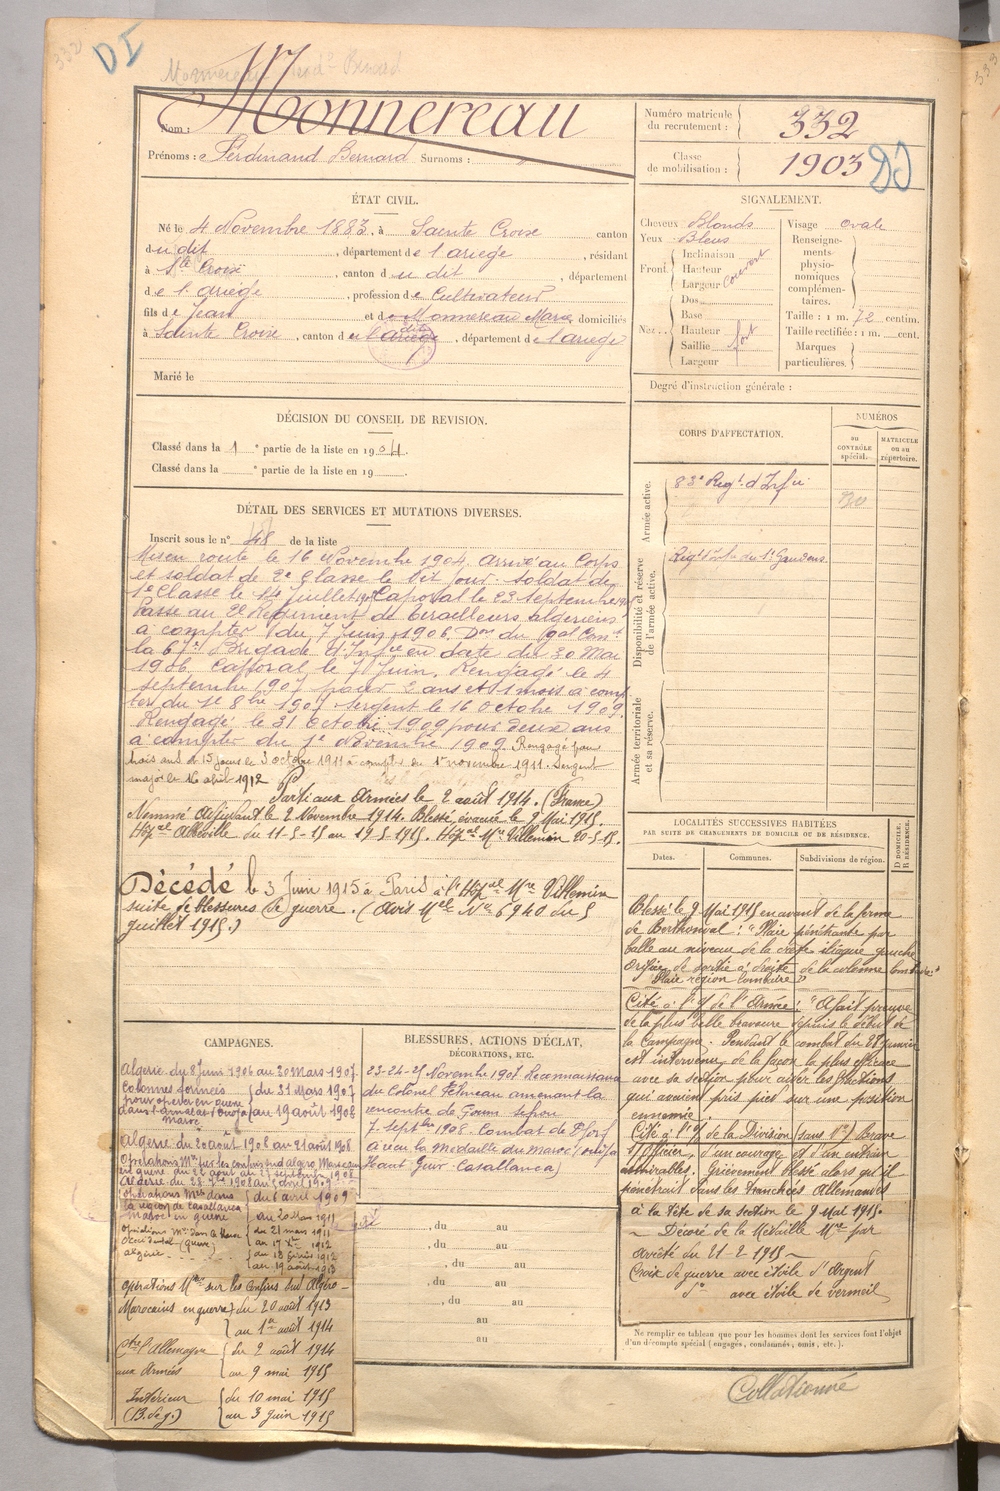 332
DI
Monnereau Ferd. Bernard
Nom : Monnereau
Prénoms : Ferdinand Bernard Surnoms :
Numéro matricule du recrutement : 332
Classe de mobilisation : 1903
DI
ÉTAT CIVIL.
Né le 4 Novembre 1883, à Sainte Croix canton
du dit, département de l'ariège, résidant
à Ste Croix, canton du dit, département
de l'ariège, profession de Cultivateur
fils de Jean et de Monnereau Marie domiciliés
à Sainte Croix, canton de l'ariège, département de l'ariège
Marié le
SIGNALEMENT.
Cheveux Blonds
Yeux Bleus
Front Inclinaison
Hauteur
Largeur Couvert
Nez Dos
Base
Hauteur fort
Saillie
Largeur
Visage ovale
Renseignements physionomiques complémentaires.
Taille : 1 m. 72 centim.
Taille rectifiée : 1 m. cent.
Marques particulières.
Degré d'instruction générale :
DÉCISION DU CONSEIL DE REVISION.
Classé dans la 1e partie de la liste en 1904.
Classé dans la e partie de la liste en 19
CORPS D'AFFECTATION.
NUMÉROS
au CONTRÔLE spécial.
MATRICULE ou au répertoire.
Armée active.
83e Régt d'Infie
Disponibilité et réserve de l'armée active.
Régt d'Infie de St Gaudens
Armée territoriale et sa réserve.
DÉTAIL DES SERVICES ET MUTATIONS DIVERSES.
Inscrit sous le n° 48 de la liste
Mis en route le 16 Novembre 1904. arrivé au Corps
et soldat de 2e Classe le dit jour. Soldat de
1e Classe le 14 Juillet 1905 Caporal le 23 septembre 1905
Passé au 2e Régiment de tirailleurs algériens
à compter du 7 Juin 1906. Don du gal Comt
la 67e Brigade d'Infie en date du 30 Mai
1906 Caporal le 7 Juin. Rengagé le 4
septembre 1907 pour 2 ans et 1 mois à comp-
ter du 1e 8bre 1907 sergent le 16 octobre 1909.
Rengagé le 31 Octobre 1909 pour deux ans
à compter du 1e Novembre 1909. Rengagé pour
trois ans et 15 jours le 3 octobre 1911 à compter du 1er novembre 1911. Sergent
major le 16 abril 1912
Parti aux Armées le 2 août 1914. (France)
Nommé Adjudant le 2 Novembre 1914. Blessé, évacué le 9 Mai 1915.
Hôpal Abbeville du 11-5-15 au 19-5-1915. Hôpal Mre Villemin 20-5-15.
Décédé le 3 Juin 1915 à Paris à l'Hôpal Mre Villemin
suite de blessures de guerre. (Avis Mel No 6940 du 5
juillet 1915.)
LOCALITÉS SUCCESSIVES HABITÉES
PAR SUITE DE CHANGEMENTS DE DOMICILE OU DE RÉSIDENCE.
Dates. Communes. Subdivisions de région. D DOMICILE. R RÉSIDENCE.
Blessé le 9 Mai 1915 en avant de la ferme
de Berthonval : "Plaie pénétrante par
balle au niveau de la crête iliaque gauche
orifice de sortie à droite de la colonne lombaire."
"Plaie région lombaire"
Cité à l'O. de l'Armée : "A fait preuve
de la plus belle bravoure depuis le début de
la Campagne. Pendant le combat du 28 janvier
est intervenu de la façon la plus efficace
avec sa section pour aider les fractions
qui avaient pris pied sur une position
ennemie.
Cité à l'O. de la Division (sans No) Brave
s/Officier, d'un courage et d'un entrain
admirables. Grièvement blessé alors qu'il
pénétrait dans les tranchées Allemandes
à la tête de sa section le 9 Mai 1915.
Décoré de la Médaille Mre par
arrêté du 21-2-1915
Croix de guerre avec étoile d'argent
do avec étoile de vermeil
CAMPAGNES.
Algérie du 8 Juin 1906 au 30 Mars 1907.
Colonnes formées pour opérer en guerre du 31 Mars 1907
Maroc au 19 août 1908
Algérie du 20 août 1908 au 21 août 1908
Opérations Mres sur les confins sud algéro Marocain
en guerre du 22 août au 27 septembre 1908
Algérie du 28 7bre 1908 au 5 avril 1909
Opérations Mres dans du 6 avril 1909
la région de Casablanca
Maroc en guerre au 20 Mars 1911
Opérations Mres dans le Maroc du 21 mars 1911
Occidental (guerre) au 17 1912
algérie du 18 février 1912
au 19 août 1913
Opérations Mres sur les Confins Sud Algéro-
Marocains en guerre du 20 août 1913
au 1er août 1914
Ctre l'Allemagne du 2 août 1914
aux Armées au 9 mai 1915
Intérieur du 10 mai 1915
(B. de g.) au 3 Juin 1915
BLESSURES, ACTIONS D'ÉCLAT,
DÉCORATIONS, ETC.
23-24-25 Novembre 1907 Reconnaissance
du Colonel Félineau amenant la
rencontre de Goum sefrou
7 septbre 1908. Combat de
A reçu la Médaille du Maroc (oudjda
Haut Guir-Casablanca)
, du au
, du au
, du au
, du au
, du au
au
au
Ne remplir ce tableau que pour les hommes dont les services font l'objet
d'un décompte spécial (engagés, condamnés, omis, etc.).
Collationné